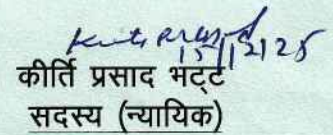 15/12/25
कीर्ति प्रसाद भट्ट
सदस्य (न्यायिक)